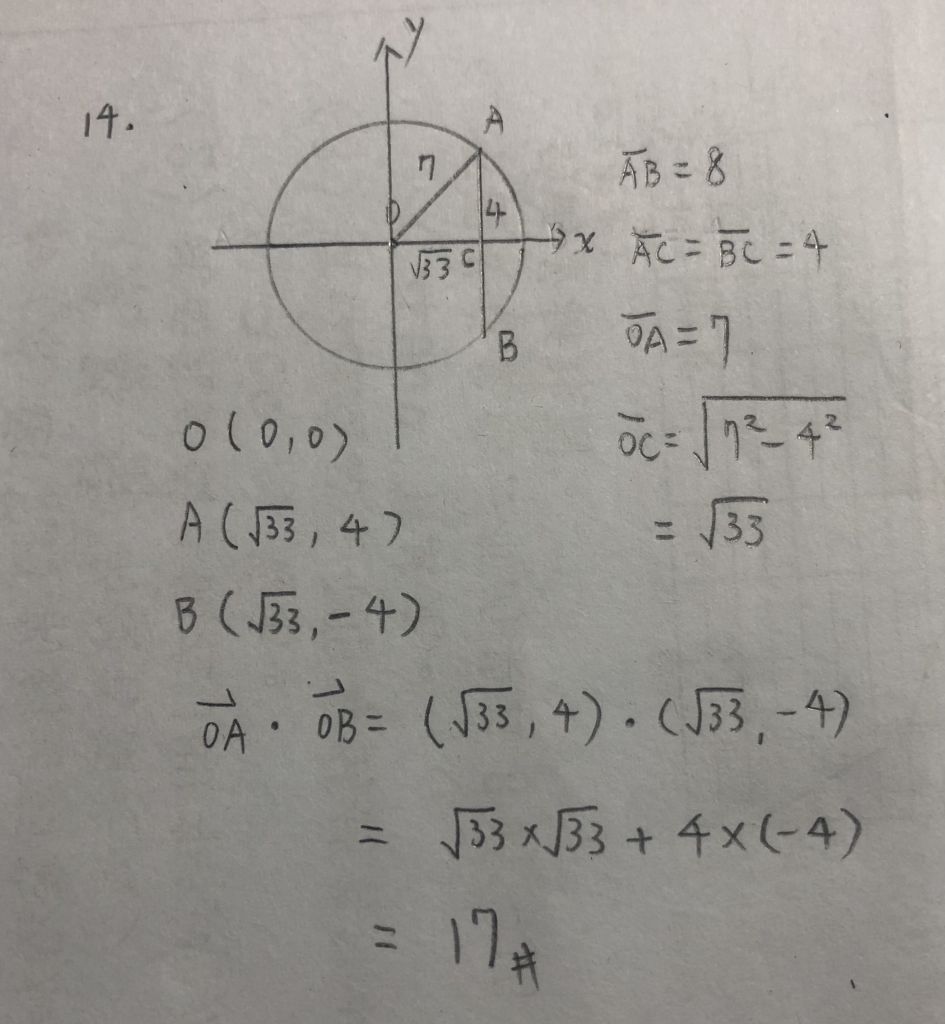 14.
y
A
7
4
O
x
√33 C
B
A̅B̅ = 8
A̅C̅ = B̅C̅ = 4
O̅A̅ = 7
O̅C̅ = √(7² - 4²)
= √33
O (0,0)
A (√33, 4)
B (√33, -4)
O⃗A⃗ · O⃗B⃗ = (√33, 4) · (√33, -4)
= √33 × √33 + 4 × (-4)
= 17 #